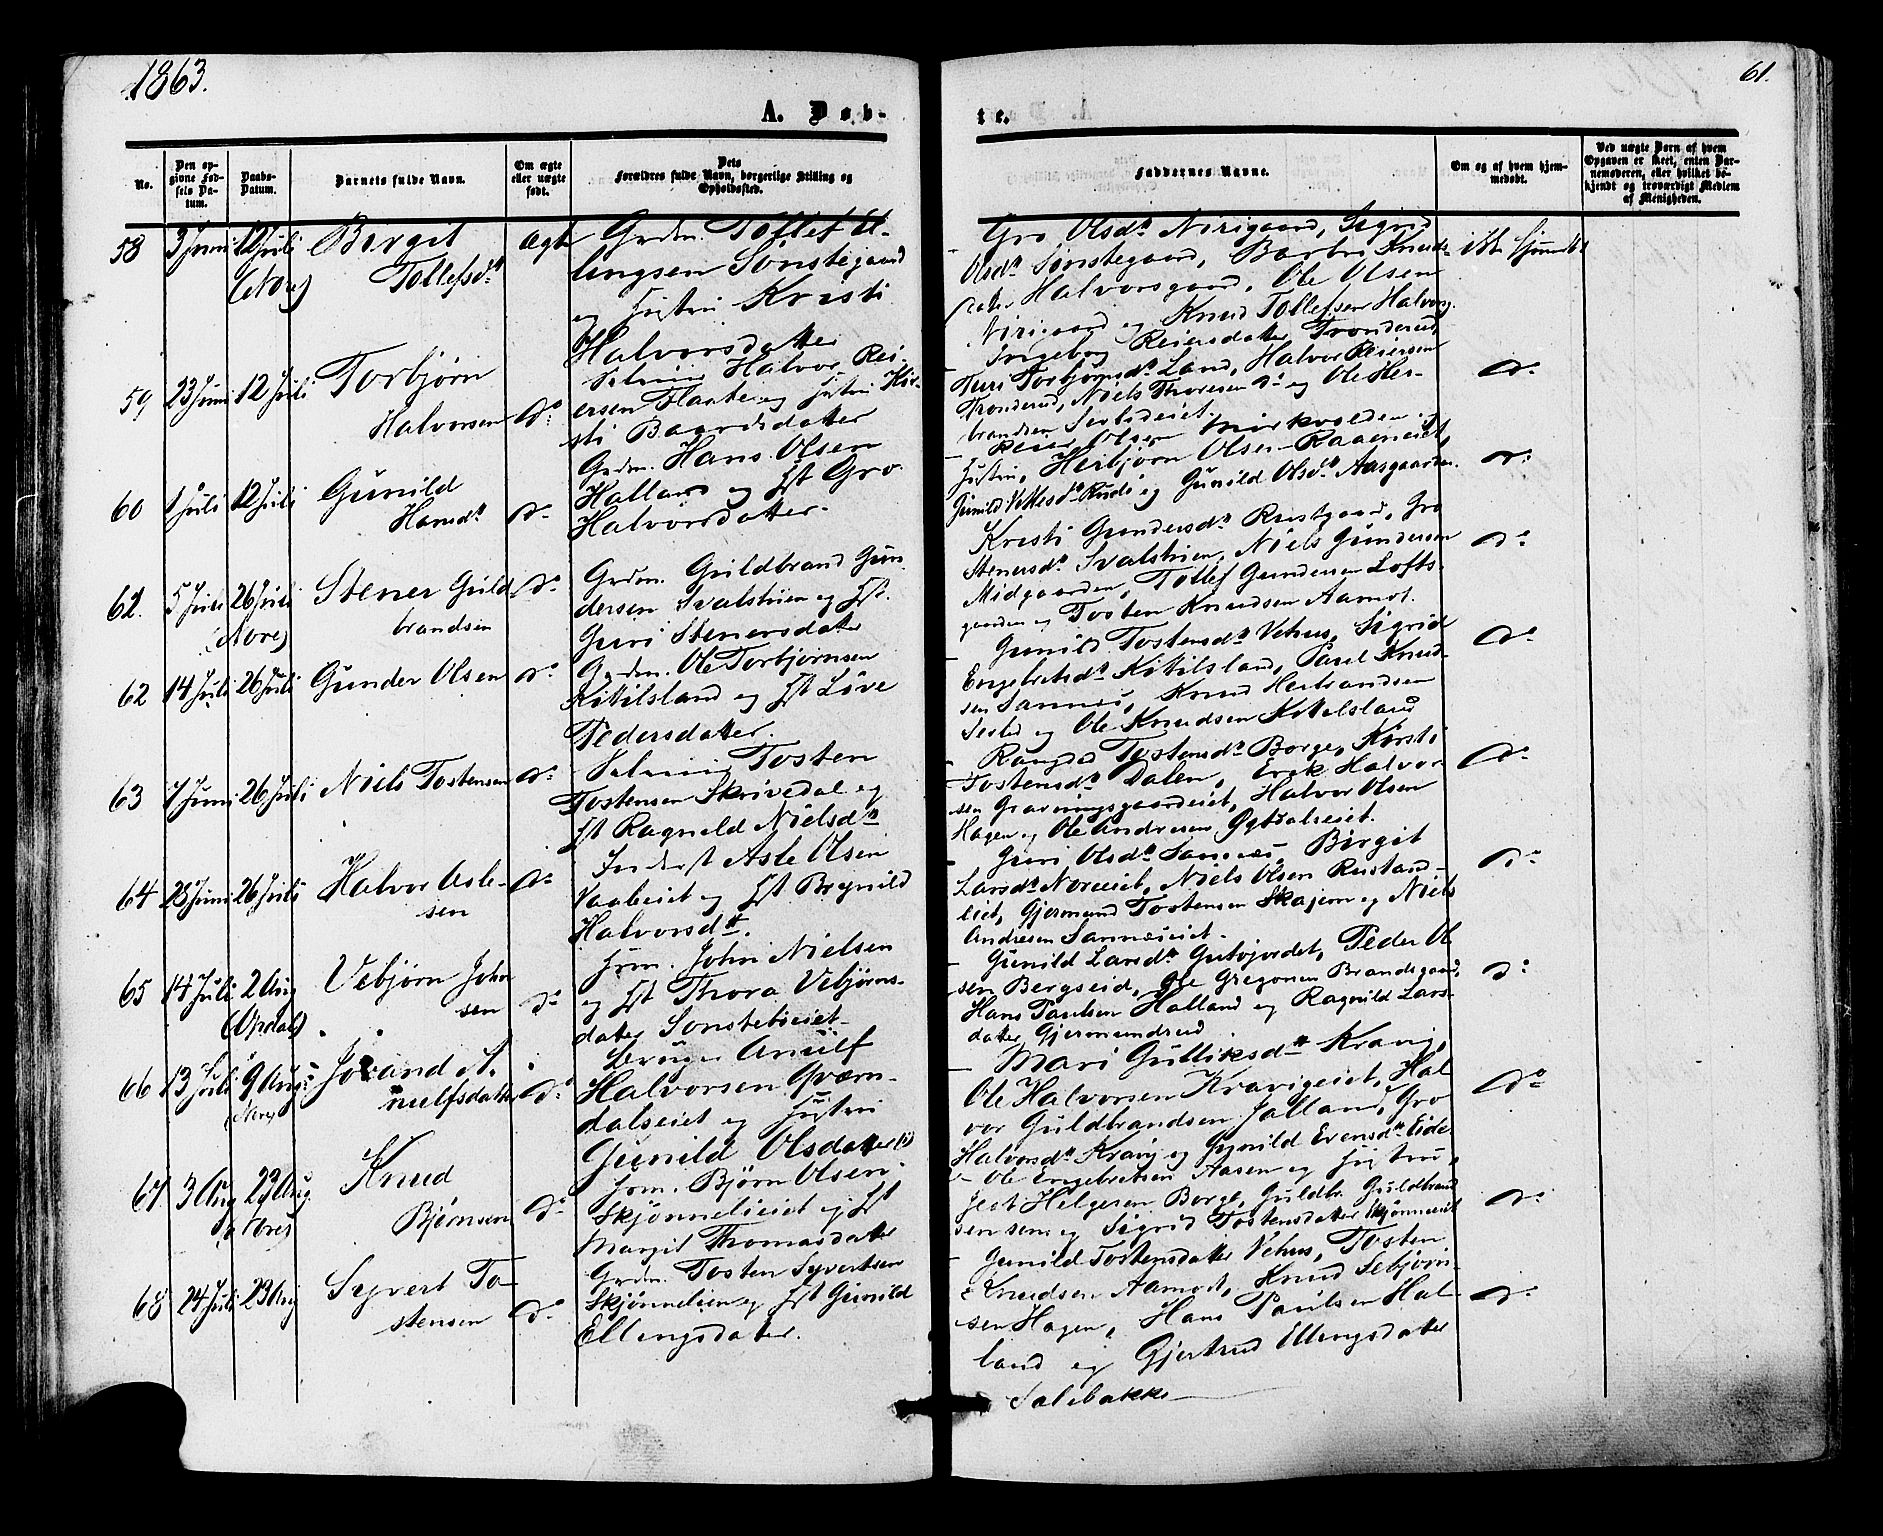 1863.
61.
A. Døb-
te.
No.
Den op-
givne Fød-
sels Da-
tum.
Daabs-
Datum.
Barnets fulde Navn.
Om ægte
eller uægte
født.
Dets
Forældres fulde Navn, borgerlige Stilling og
Opholdssted.
Faddernes Navne.
Om og af hvem hjem-
medøbt.
Ved uægte Barn af hvem
Opgaven er skeet, enten Bar-
nemoderen, eller hvilket be-
kjendt og troværdigt Medlem
af Menigheden.
58
3 Juni
12 Juli
(Nore)
Birgit
Tollefsd.
ægte
Grdm. Tollef El-
lingsen Sønstegaard
og Hustru Kristi
Halvorsdatter
Gro Olsd. Nirigaard, Sigrid
Olsd. Sønstegaard, Barbro Knuds-
dater Halvorsgaard, Ole Olsen
Nirigaard og Knud Tollefsen Halvorsg.
ikke hjemdøbt
59
23 Juni
12 Juli
Torbjørn
Halvorsen
do
Selveier Halvor Rei-
ersen Flaate og Hustru Kir-
sti Baardsdatter
Ingebog Reiersdatter Tronderud
Turi Torbjørnsd. Land, Halvor Reiersen
Tronderud, Niels Thoresen do og Ole Her-
brandsen Serbdeiet.
do
60
1 Juli
12 Juli
Gunild
Hansd.
do
Grdm. Hans Olsen
Halland og Hst Gro
Halvorsdatter.
Reier Olsen Mirkvolden og
Hustru, Herbjørn Olsen Raaeneiet,
Gunild Vettesd. Rudi og Gunild Olsd. Aasgaarden.
do
61.
5 Juli
26 Juli
(Nore)
Stener Guld
brandsen
do
Grdm. Guldbrand Gun
dersen Svalstuen og Hst.
Guri Stenersdater
Kristi Gundersd. Rustgaard, Gro
Stenersd. Svalstuen, Niels Gundersen
Midgaarden, Tollef Gundersen Lofts-
gaarden og Tosten Knudsen Aamot.
do
62
14 Juli
26 Juli
Gunder Olsen
do
Grdm. Ole Torbjørnsen
Kittilsland og Hst Live
Pedersdatter.
Gunild Tostensd. Vehus, Sigrid
Engebretsd. Kittilsland, Paul Knud-
sen Sannes, Knud Herbrandsen
og Ole Knudsen Kittelsland
do
63
7 Juni
26 Juli
Niels Tostensen
do
Selveier Tosten
Tostensen Skrivedal og
Hst Ragnild Nielsd.
Rangdi Tostensd. Borge, Kirsti
Tostensd. Dalen, Erik Halvor-
sen Gravningsgaardeiet, Halvor Olsen
Hagen og Ole Andresen Ögtdalseiet.
do
64
28 Juni
26 Juli
Halvor Asle-
sen
do
Inderst Asle Olsen
Vaabeiet og Hst Brynild
Halvorsd.
Guri Olsd. Sannes, Birgit
Larsd. Noreeiet, Niels Olsen Rustand-
eiet, Gjermund Tostensen Skajem og Niels
Andresen Sanneseiet.
do
65
14 Juli
2 Aug
(Opdal)
Vebjørn John
sen
do
Hsm. John Nielsen
og Hst Thora Vebjørns-
dater Sonstebøeiet
Gunild Larsd. Gutujordet, Peder Ol
sen Bergseid, Ole Gregorsen Brandsgaard,
Hans Paulsen Halland og Ragnild Lars-
dater Gjermundsrud
do
66
13 Juli
9 Aug
(Nore)
Jorand A.
nulfsdatter
do
Bruger Anulf
Halvorsen Qværn-
dalseiet og Hustru
Gunild Olsdatter
Mari Gulliksd. Kravig,
Ole Halvorsen Kravigeiet, Hal
vor Guldbrandsen Jalland, Gro
Halvorsd. Kravig og Gunild Evensd. Eide
do
67
3 Aug
23 Aug
(Nore)
Knud
Bjørnsen
do
Hsm. Bjørn Olsen
Skjønnelieiet og Hst
Margit Thomasdatter
Ole Engebretsen Aasen og Hustru,
Helgesen Borge, Guldbr. Guldbrand
sen og Sigrid Tostensdatter Skjønneeiet
do
68
24 Juli
23 Aug
Syvert To-
stensen
do
Grdm. Tosten Syvertsen
Skjønnelien og Hst Gunild
Ellingsdater.
Gunild Tostensdatter Vehus, Tosten
Knudsen Aamot, Knud Sebjørn-
sen Hagen, Hans Paulsen Hal-
land og Gjertrud Ellingsdatter
Solebakke
do